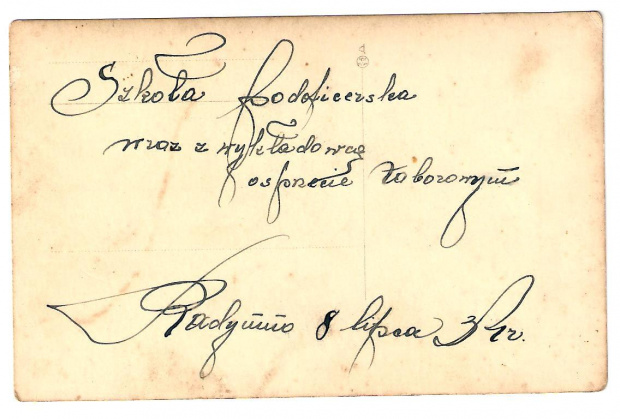 Szkoła podoficerska
wraz z wykładowcą
o sprzęcie taborowym
Radymno 8 lipca 34r.